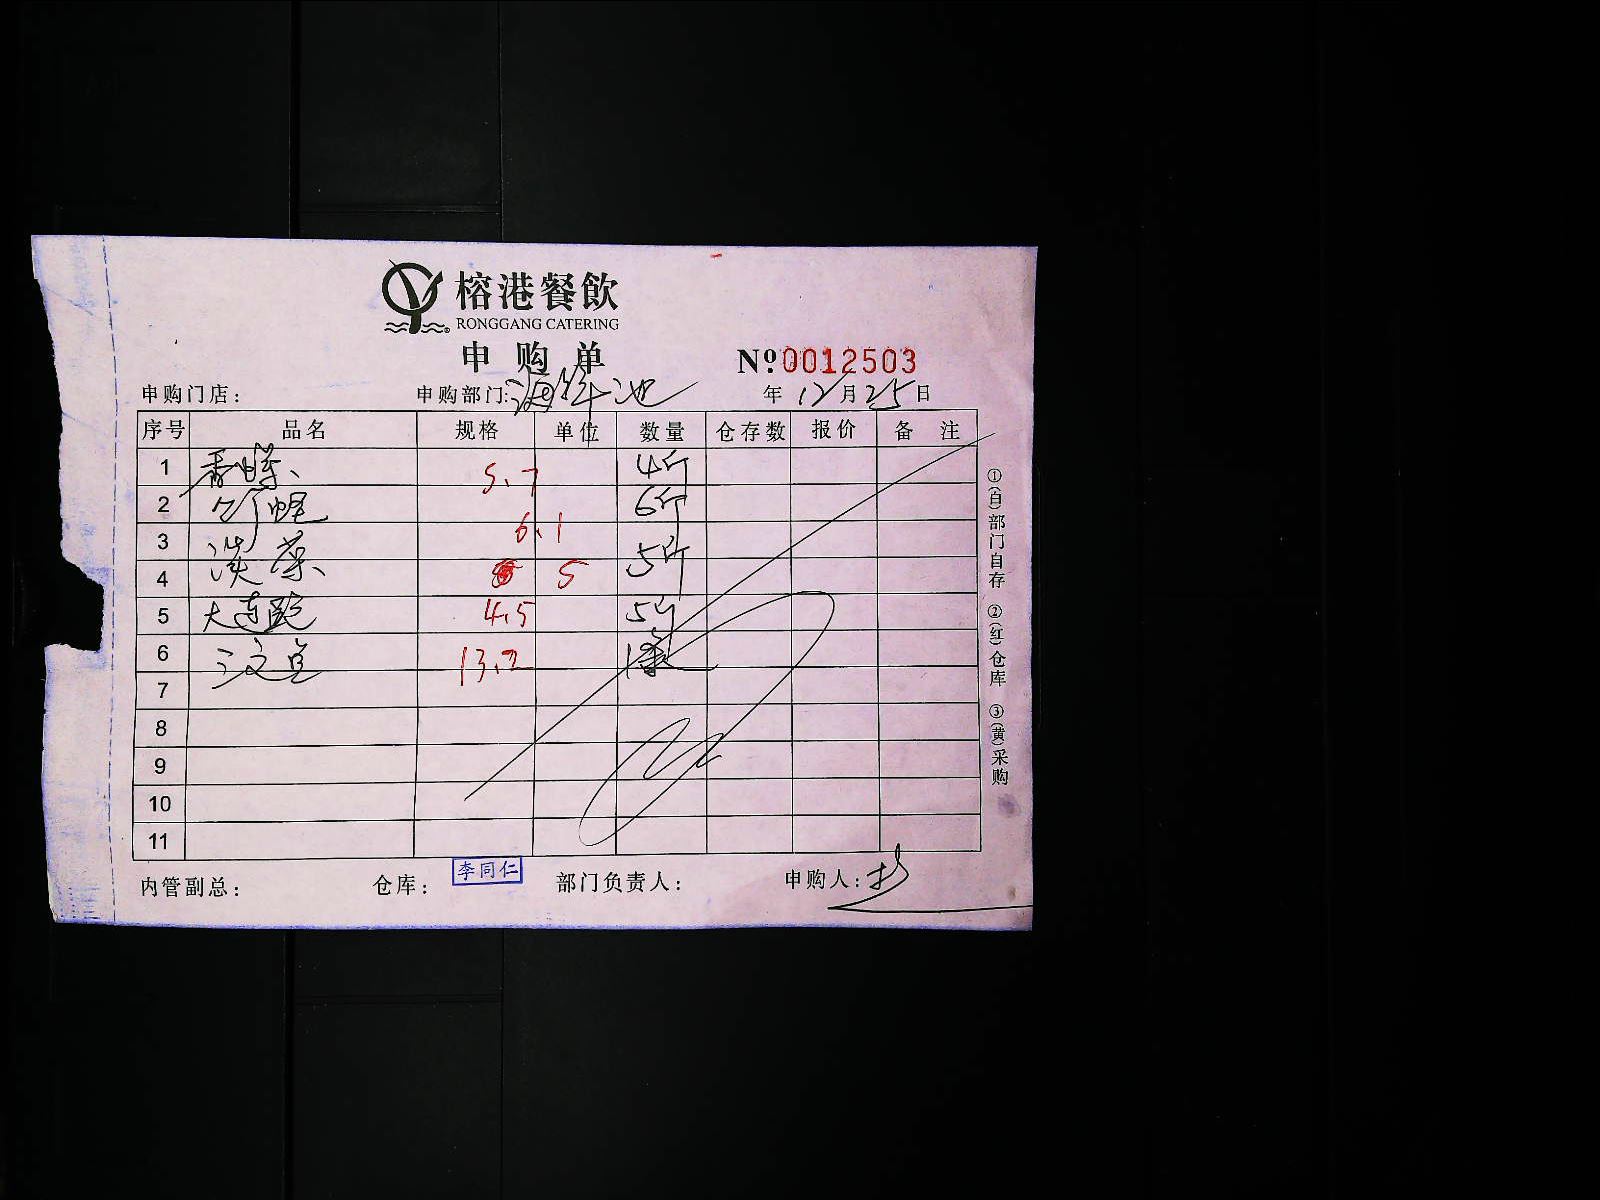 榕港餐飲
RONGGANG CATERING
申购单
Nº0012503
申购门店： 申购部门：海鲜池 年 12月25日
序号 品名 规格 单位 数量 仓存数 报价 备 注
1 香螺 5.7 4斤
2 6.1 6斤
3
4 淡菜 5 5斤
5 大连鲍 4.5 5斤
6 13.2
7
8
9
10
11
①(白)部门自存 ②(红)仓库 ③(黄)采购
内管副总： 仓库： 李同仁 部门负责人： 申购人：